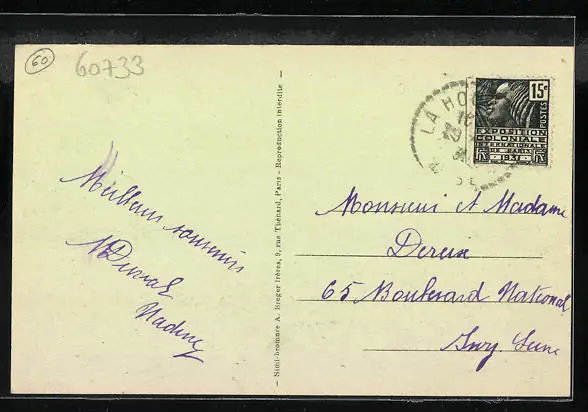 60
60733
Meilleurs souvenirs
Nadine
- Simi-bromure A. Breger frères, 9, rue Thénard, Paris - Reproduction interdite -
LA HO
15c
POSTES
EXPOSITION
COLONIALE
INTERNATIONALE
DE PARIS
1931
Monsieur et Madame
Dereux
65 Boulevard National
Ivry. Seine